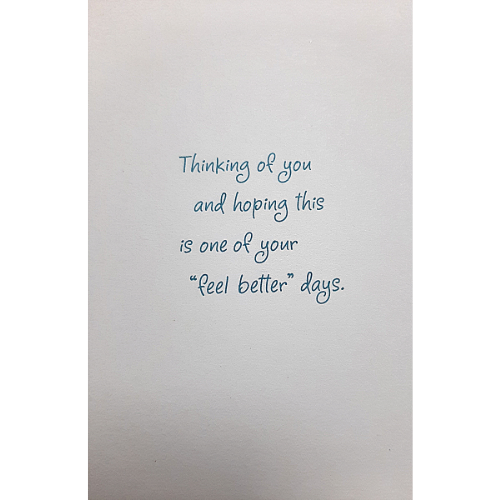 Thinking of you
and hoping this
is one of your
“feel better” days.